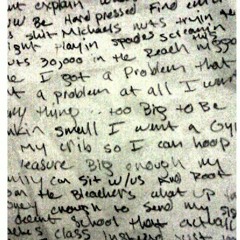 t explain what
w Be Hard pressed Find
shit Michaels nuts tryin
ight Playin spades screamin
uts 30,000 in the Reach
e I got a Problem that
t a problem at all I wan
ny thing... too Big to Be
nkin small I want a Gym
My crib so I can hoop
leasure Big enough my
mily can sit w/us and Root
om the Bleachers what up
ey enough to send my
decent School that actuall
ches class